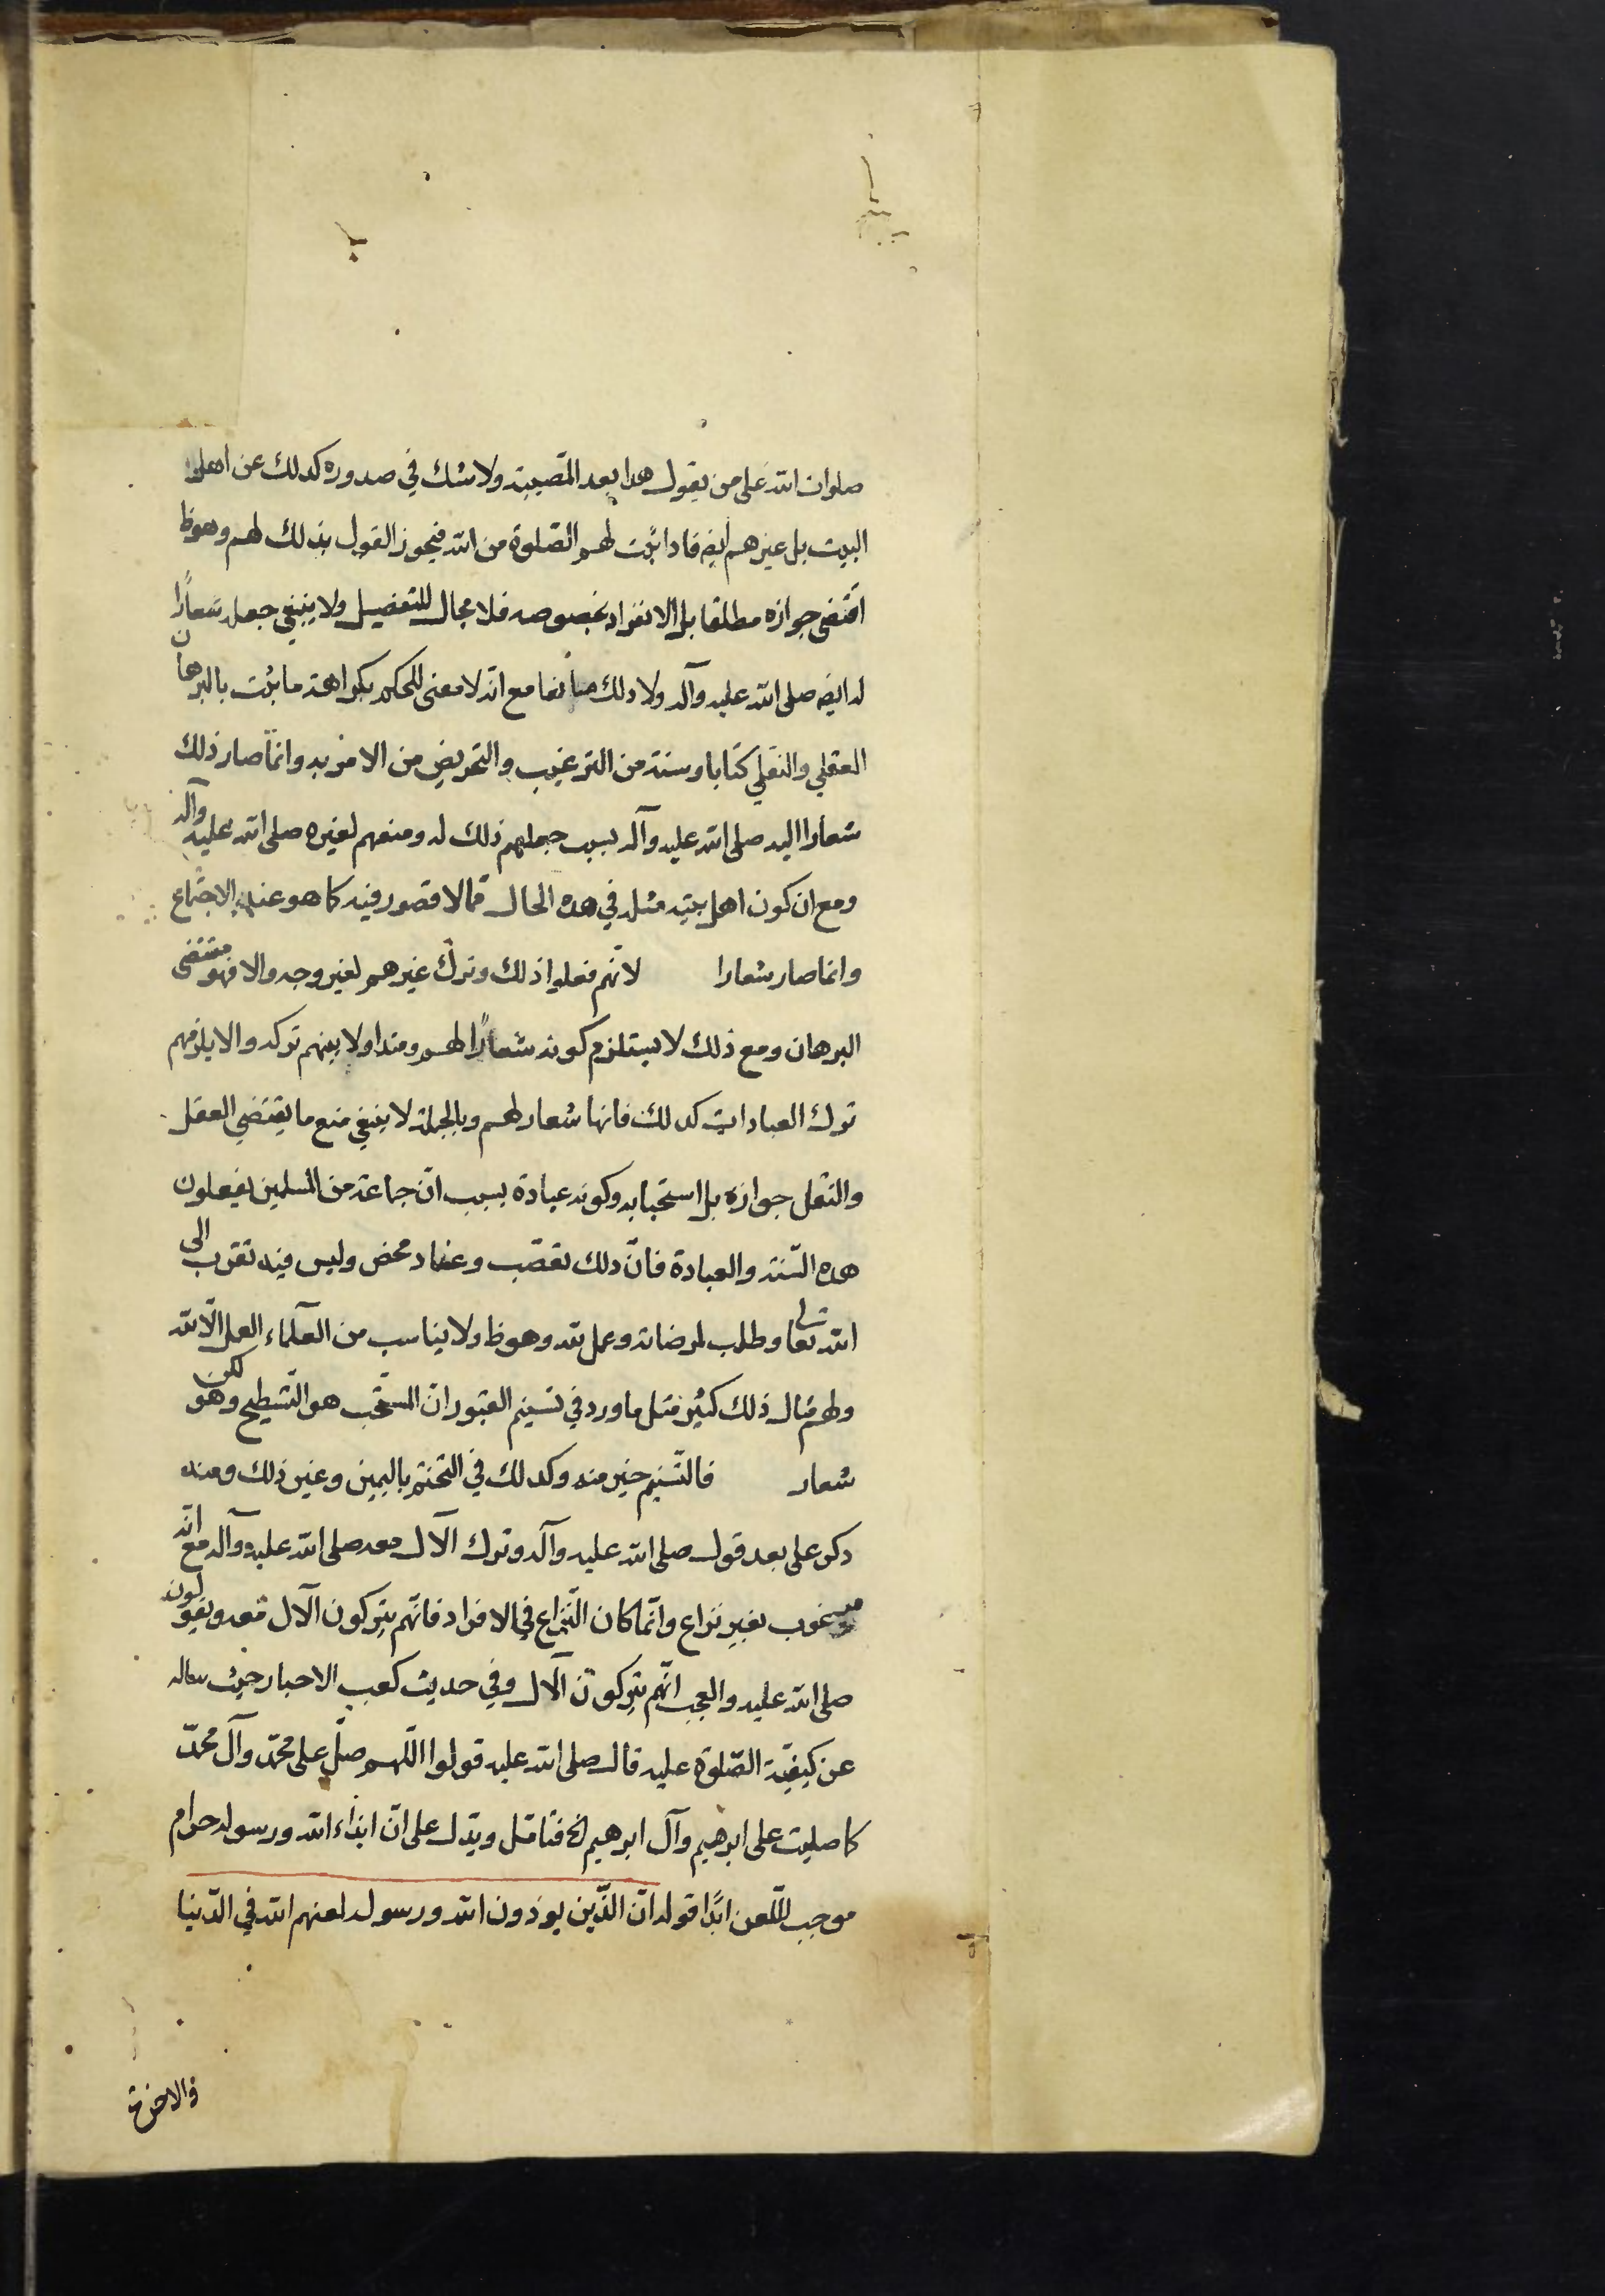 صلوات الله على من يقول هذا بعد المصيبة ولا شك في صدوره كذلك عن اهل
البيت بل غيرهم ايضه فاذا ثبت لهم الصلوة من الله فيجوز القول بذلك لهم وهو ظ
اقتضى جوازه مطلقا بل الانفراد بخصوصه فلا مجال للتفضيل ولا ينبغي جعله شعارًا
له ايضه صلى الله عليه وآله ولا ذلك مانعا مع انه لا معنى للحكم بكراهة ما ثبت بالبرهان
العقلي والنقلي كتابا وسنة من الترغيب والتحريض من الامر به وانّما صار ذلك
شعارا اليه صلى الله عليه وآله بسبب جعلهم ذلك له ومنعهم لغيره صلى الله عليه وآله
ومع ان كون اهل بيته مثله في هذه الحال ممّا لا قصور فيه كما هو عند الاجتماع
وانما صار شعارا لانّهم فعلوا ذلك وترك غيرهم لغير وجه والا فهو مقتضى
البرهان ومع ذلك لا يستلزم كونه شعارًا لهم ومتداولا بينهم تركه والا يلزمهم
ترك العبادات كذلك فانها شعار لهم وبالجملة لا ينبغي منع ما يقتضي العقل
والنقل جوازه بل استحبابه وكونه عبادة بسبب انّ جماعة من المسلمين يفعلون
هذه السّنة والعبادة فانّ ذلك تعصّب وعناد محض وليس فيه تقرب الى
الله تعالى وطلب لمرضاته وعمل لله وهو ظ ولا يناسب من العلماء العمل الّا لله
ولهم مثال ذلك كثير مثل ما ورد في تسنيم القبور انّ المستحّب هو التّسطيح وهو لكن
شعار فالتّسنيم خير منه وكذلك في التختم باليمين وغير ذلك ومنه
ذكر على بعد قول صلى الله عليه وآله وترك الآل معه صلى الله عليه وآله مع انّه
مرغوب بغير نزاع وانّما كان النّزاع في الافراد فانّهم يتركون الآل معه ويقولون
صلى الله عليه والعجب انّهم يتركون الآل وفي حديث كعب الاحبار حيث سأله
عن كيفيّة الصّلوة عليه قال صلى الله عليه قولوا اللّهم صلّ على محمّد وآل محمّد
كما صليت على ابرهيم وآل ابرهيم الخ فتامّل ويدّل على انّ ايذاء الله ورسوله حرام
موجب للّعن ابدًا قوله انّ الذّين يوذون الله ورسوله لعنهم الله في الدّنيا
والاخرة